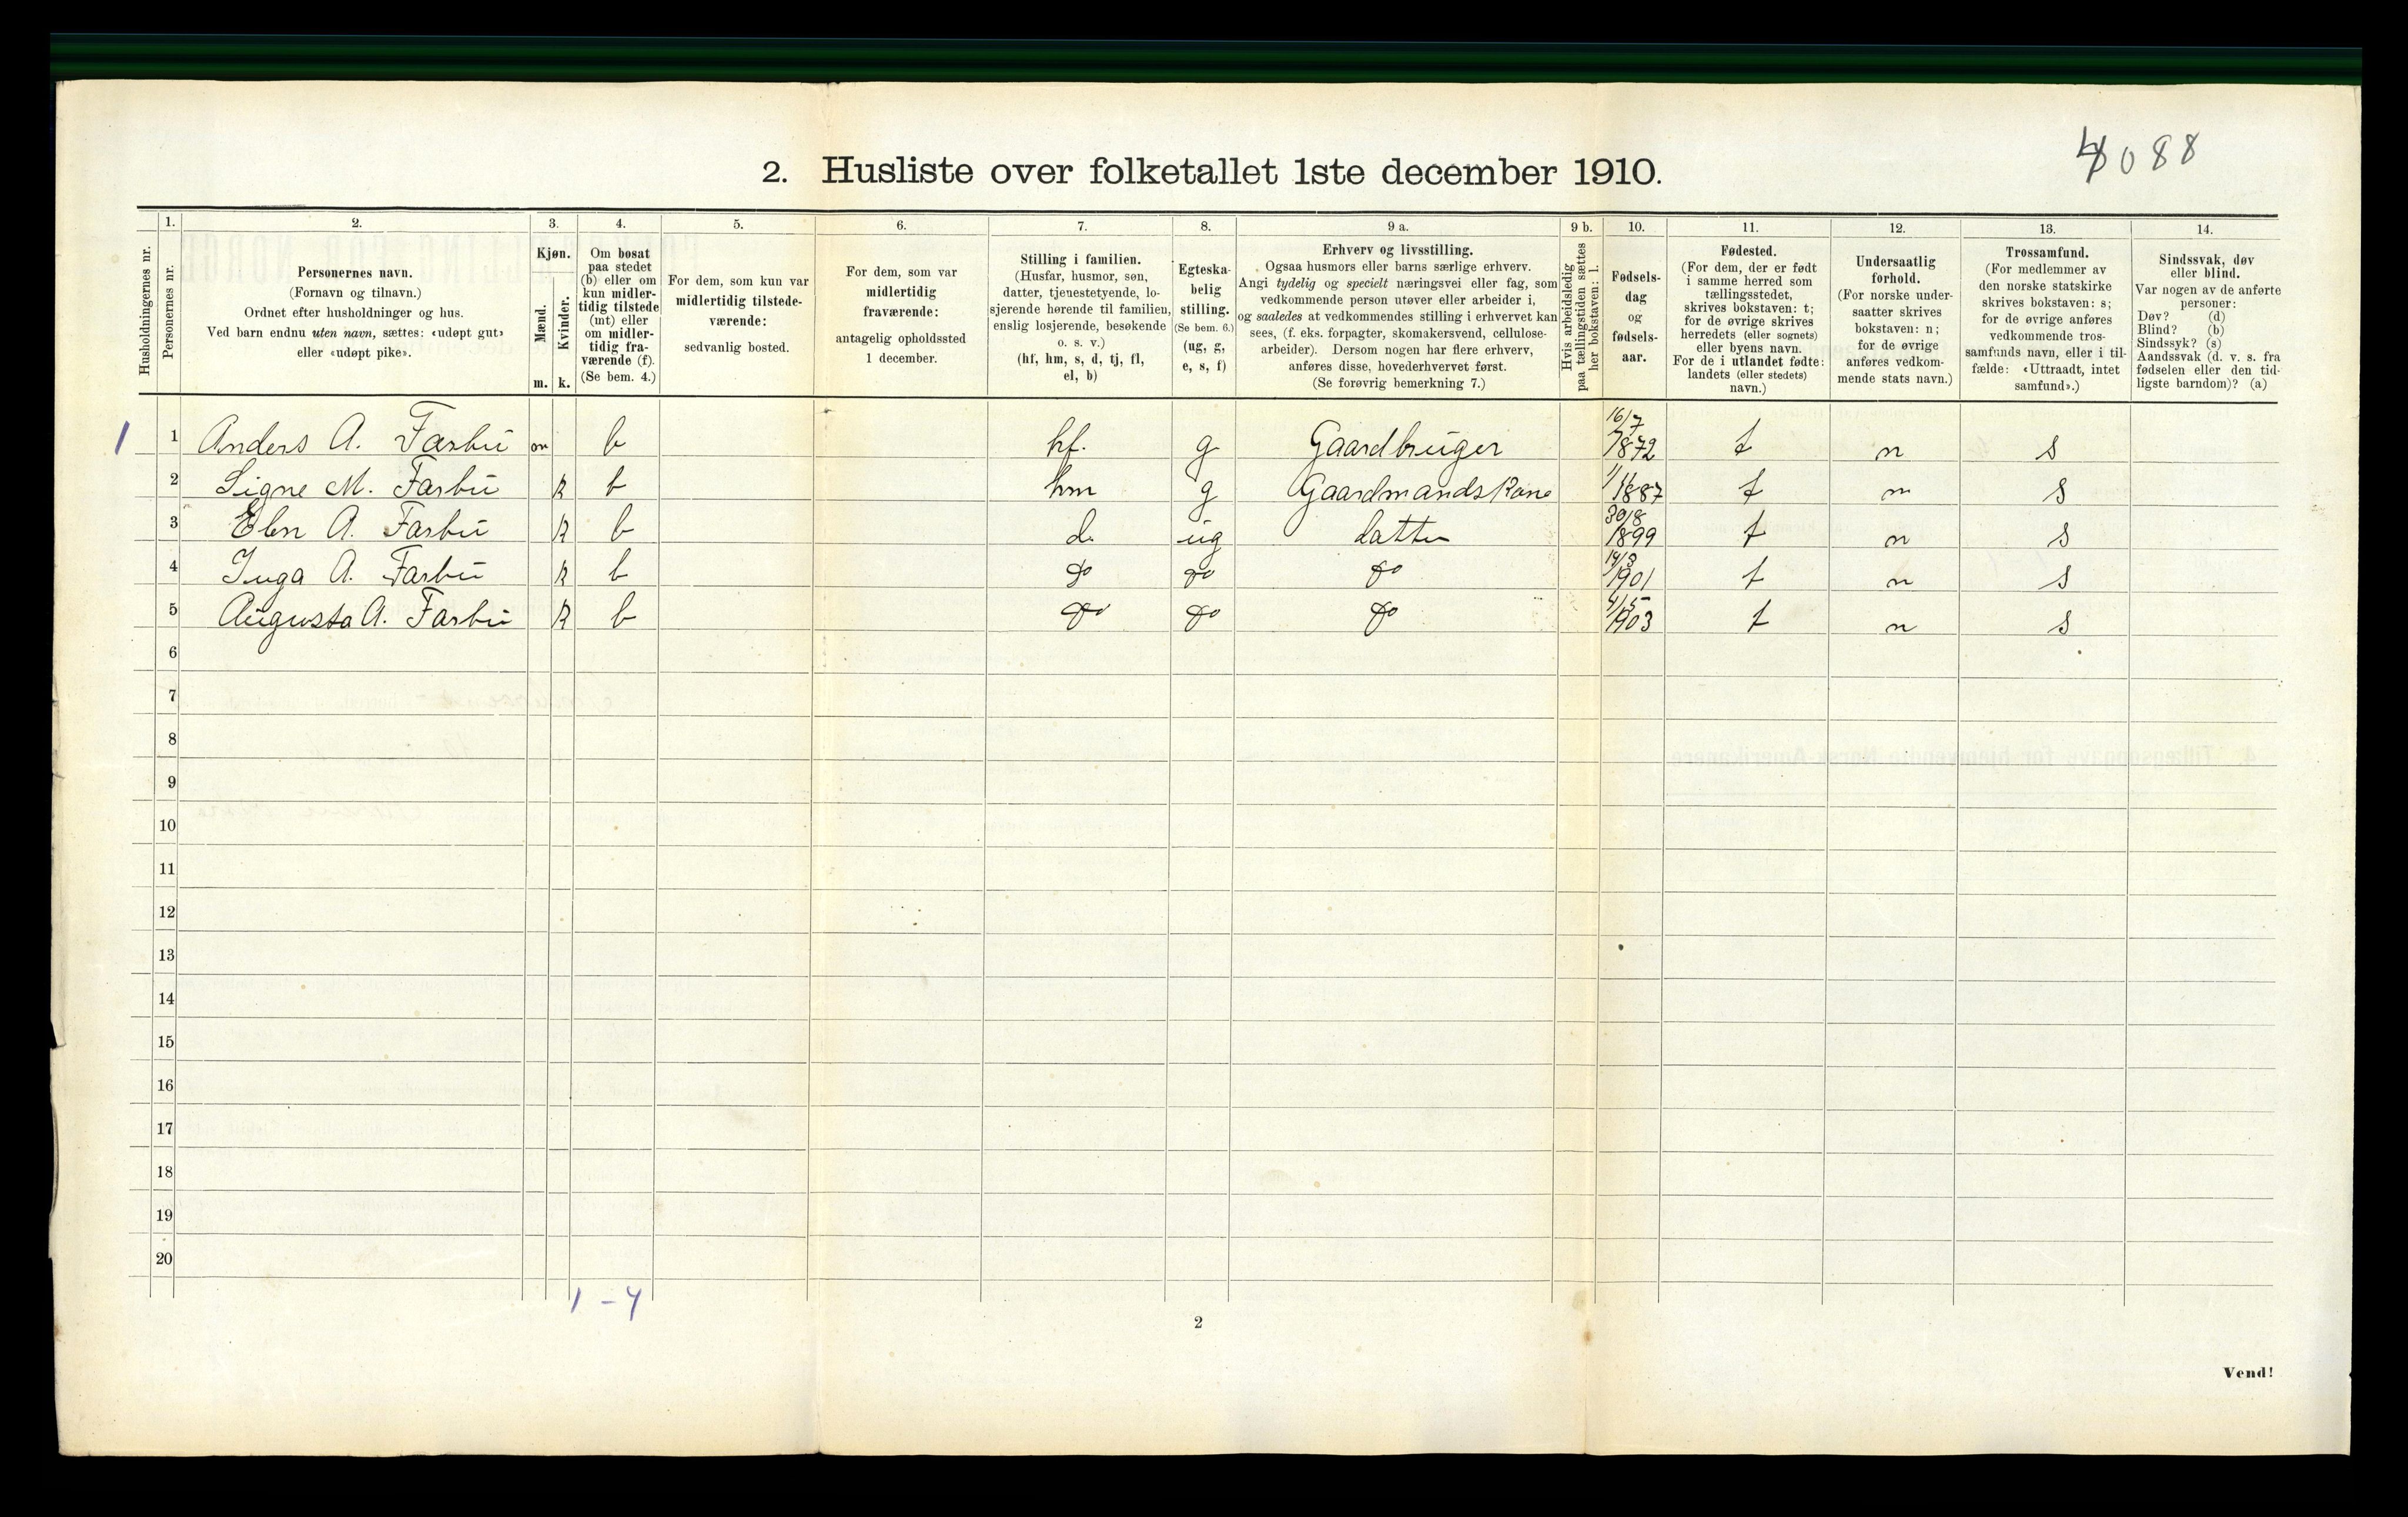 4088
2. Husliste over folketallet 1ste december 1910.
Husholdningernes nr.
1.
Personernes nr.
2.
Personernes navn.
(Fornavn og tilnavn.)
Ordnet efter husholdninger og hus.
Ved barn endnu uten navn, sættes: «udøpt gut»
eller «udøpt pike».
3.
Kjøn.
Mænd.
Kvinder.
m. k.
4.
Om bosat
paa stedet
(b) eller om
kun midler-
tidig tilstede
(mt) eller
om midler-
tidig fra-
værende (f).
(Se bem. 4.)
5.
For dem, som kun var
midlertidig tilstede-
værende:
sedvanlig bosted.
6.
For dem, som var
midlertidig
fraværende:
antagelig opholdssted
1 december.
7.
Stilling i familien.
(Husfar, husmor, søn,
datter, tjenestetyende, lo-
sjerende hørende til familien,
enslig losjerende, besøkende
o. s. v.)
(hf, hm, s, d, tj, fl,
el, b)
8.
Egteska-
belig
stilling.
(Se bem. 6.)
(ug, g,
e, s, f)
9 a.
Erhverv og livsstilling.
Ogsaa husmors eller barns særlige erhverv.
Angi tydelig og specielt næringsvei eller fag, som
vedkommende person utøver eller arbeider i,
og saaledes at vedkommendes stilling i erhvervet kan
sees, (f. eks. forpagter, skomakersvend, cellulose-
arbeider). Dersom nogen har flere erhverv,
anføres disse, hovederhvervet først.
(Se forøvrig bemerkning 7.)
9 b.
Hvis arbeidsledig
paa tællingstiden sættes
her bokstaven: l.
10.
Fødsels-
dag
og
fødsels-
aar.
11.
Fødested.
(For dem, der er født
i samme herred som
tællingsstedet,
skrives bokstaven: t;
for de øvrige skrives
herredets (eller sognets)
eller byens navn.
For de i utlandet fødte:
landets (eller stedets)
navn.)
12.
Undersaatlig
forhold.
(For norske under-
saatter skrives
bokstaven: n;
for de øvrige
anføres vedkom-
mende stats navn.)
13.
Trossamfund.
(For medlemmer av
den norske statskirke
skrives bokstaven: s;
for de øvrige anføres
vedkommende tros-
samfunds navn, eller i til-
fælde: «Uttraadt, intet
samfund».)
14.
Sindssvak, døv
eller blind.
Var nogen av de anførte
personer:
Døv? (d)
Blind? (b)
Sindssyk? (s)
Aandssvak (d. v. s. fra
fødselen eller den tid-
ligste barndom)? (a)
1 1 Anders A. Farbu m b hf. g Gaardbruger 16/7 1872 t n s
2 Signe M. Farbu k b hm g Gaardmandskone 1/11 1887 t n s
3 Elen A. Farbu k b d. ug datter 30/8 1899 t n s
4 Inga A. Farbu k b do do do 14/3 1901 t n s
5 Augusta A. Farbu k b do do do 4/5 1903 t n s
6
7
8
9
10
11
12
13
14
15
16
17
18
19
20
1 - 4
2
Vend!